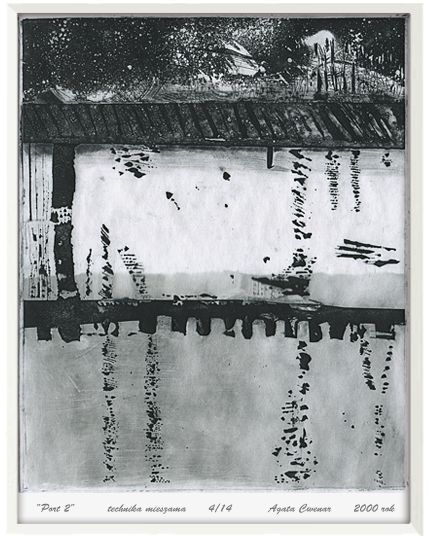 "Port 2" technika mieszama 4/14 Agata Cwenar 2000 rok